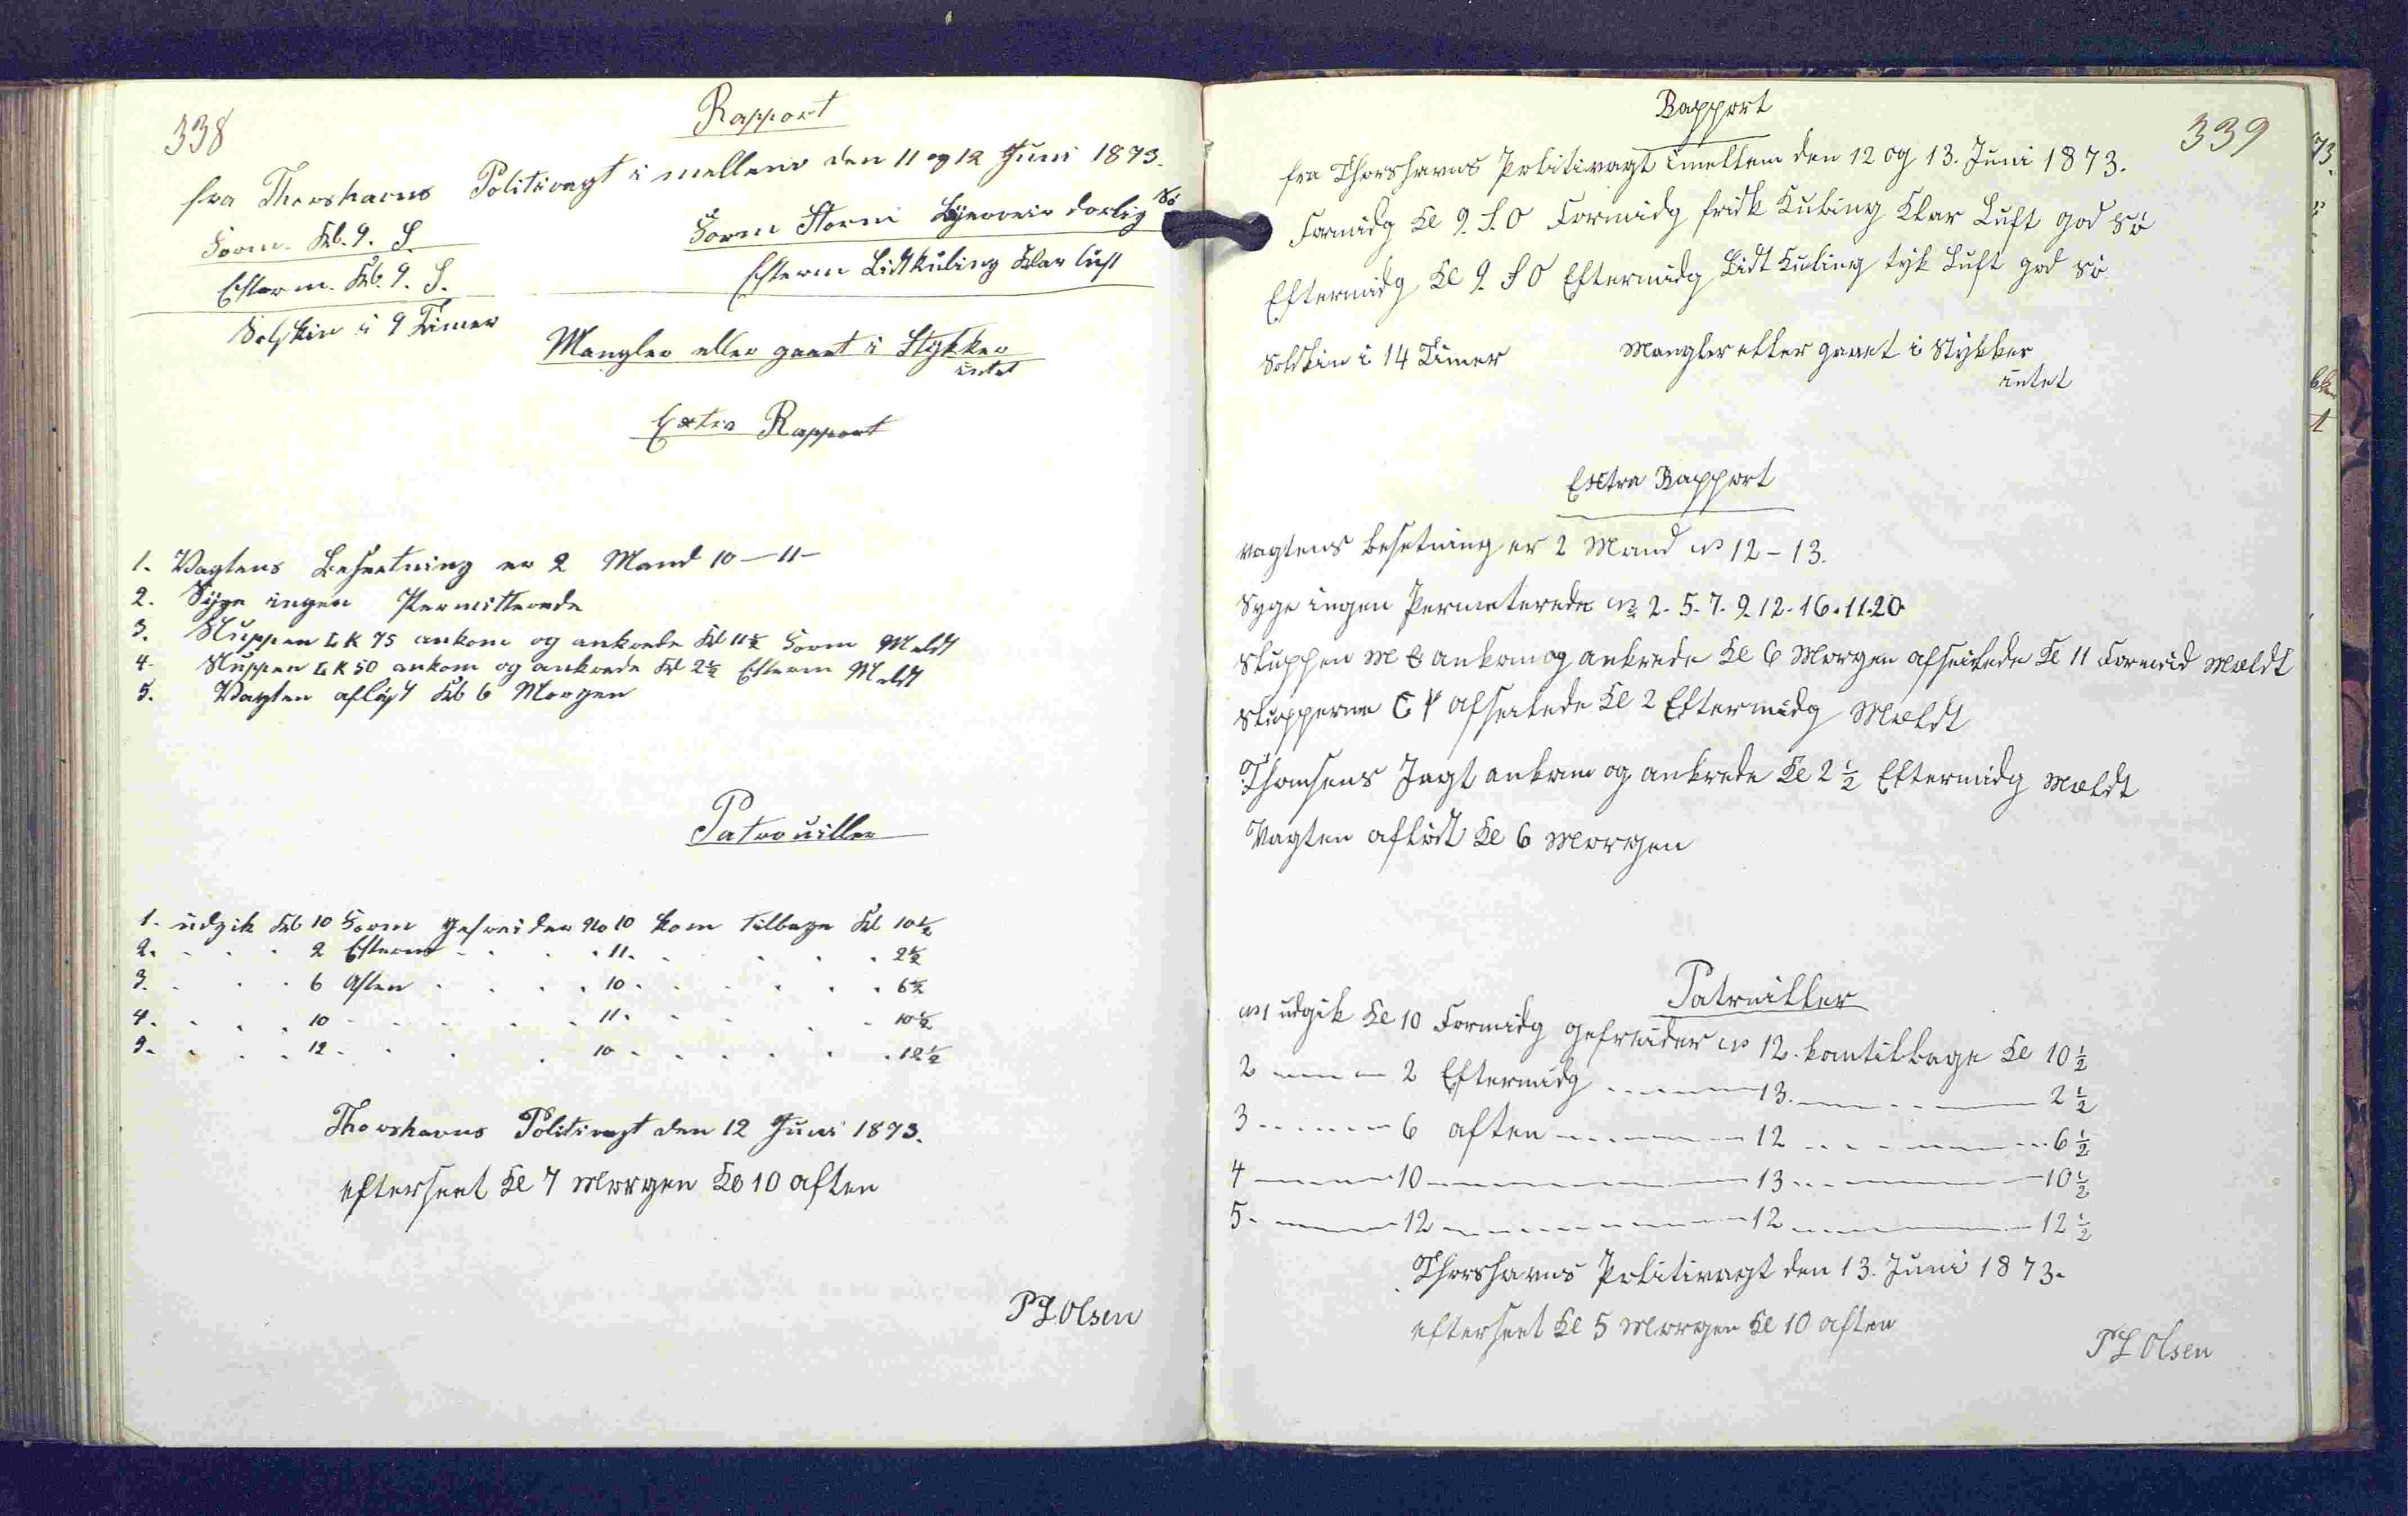 338
Rapport
fra Thorshavns Politivagt i mellem den 11 og 12 Juni 1873.
Form. Kl. 9. S. Form Storm Byeveir darlig Sø
Efterm. Kl. 9. S. Efterm Lidt Kuling Klar luft
Solskin i 9 Timer
Mangler eller gaaet i Stykker
intet
Extra Rapport
1. Vagtens Besætning er 2 Mand 10 – 11 –
2. Syge ingen Permitterede
3. Sluppen LK 75 ankom og ankrede Kl 11½ Form Meldt
4. Sluppen LK 50 ankom og ankrede Kl 2½ Efterm Meldt
5. Vagten afløst Kl 6 Morgen
Patrouiller
1. udgik Kl 10 Form Gefreider No 10 kom tilbage Kl 10½
2. . . . 2 Efterm . . . 11. . . . . 2½
3. . . . 6 Aften . . . . 10. . . . . 6½
4. . . . 10 . . . . . 11. . . . . 10½
5. . . . 12 . . . . . 10 . . . . . 12½
Thorshavns Politivagt den 12 Juni 1873.
efterseet Kl 7 Morgen Kl 10 aften
P L Olsen
339
Rapport
fra Thorshavns Politivagt imellem den 12 og 13. Juni 1873.
Formidg Kl 9. S.O Formidg frisk Kuling Klar Luft god Sø
Eftermidg Kl 9. S O Eftermidg Lidt Kuling tyk Luft god Sø
Solskin i 14 Timer Mangler eller gaaet i Stykker
intet
Extra Rapport
vagtens besetning er 2 Mand No 12 – 13.
Syge ingen Permeterede No 2. 5. 7. 9 12. 16. 11. 20
Sluppen M ankom og ankrede Kl 6 Morgen afseilede Kl 11 Formid Mældt
Slupperne afseilede Kl 2 Eftermidg Mældt
Thomsens Jagt ankom og ankrede Kl 2½ Eftermidg Mældt
Vagten afløst Kl 6 Morgen
Patruiller
No 1 udgik Kl 10 Formidg gefreider No 12. kom tilbage Kl 10½
2 — — 2 Eftermidg — — 13. — — 2½
3 — — 6 aften — — 12 — — 6½
4 — — 10 — — 13 — — 10½
5. — — 12 — — 12 — — 12½
Thorshavns Politivagt den 13. Juni 1873.
efterseet Kl 5 Morgen Kl 10 aften
P L Olsen